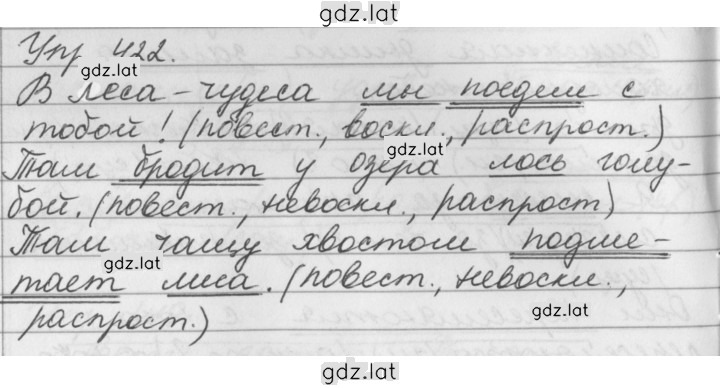 gdz.lat
Упр 422.
gdz.lat
gdz.lat
В леса-чудеса мы поедем с
тобой! (повест., воскл., распрост.)
gdz.lat
Там бродит у озера лось голу-
бой. (повест., невоскл., распрост)
Там чащу хвостом подме-
gdz.lat
тает лиса. (повест., невоскл.,
gdz.lat
распрост.)
gdz.lat